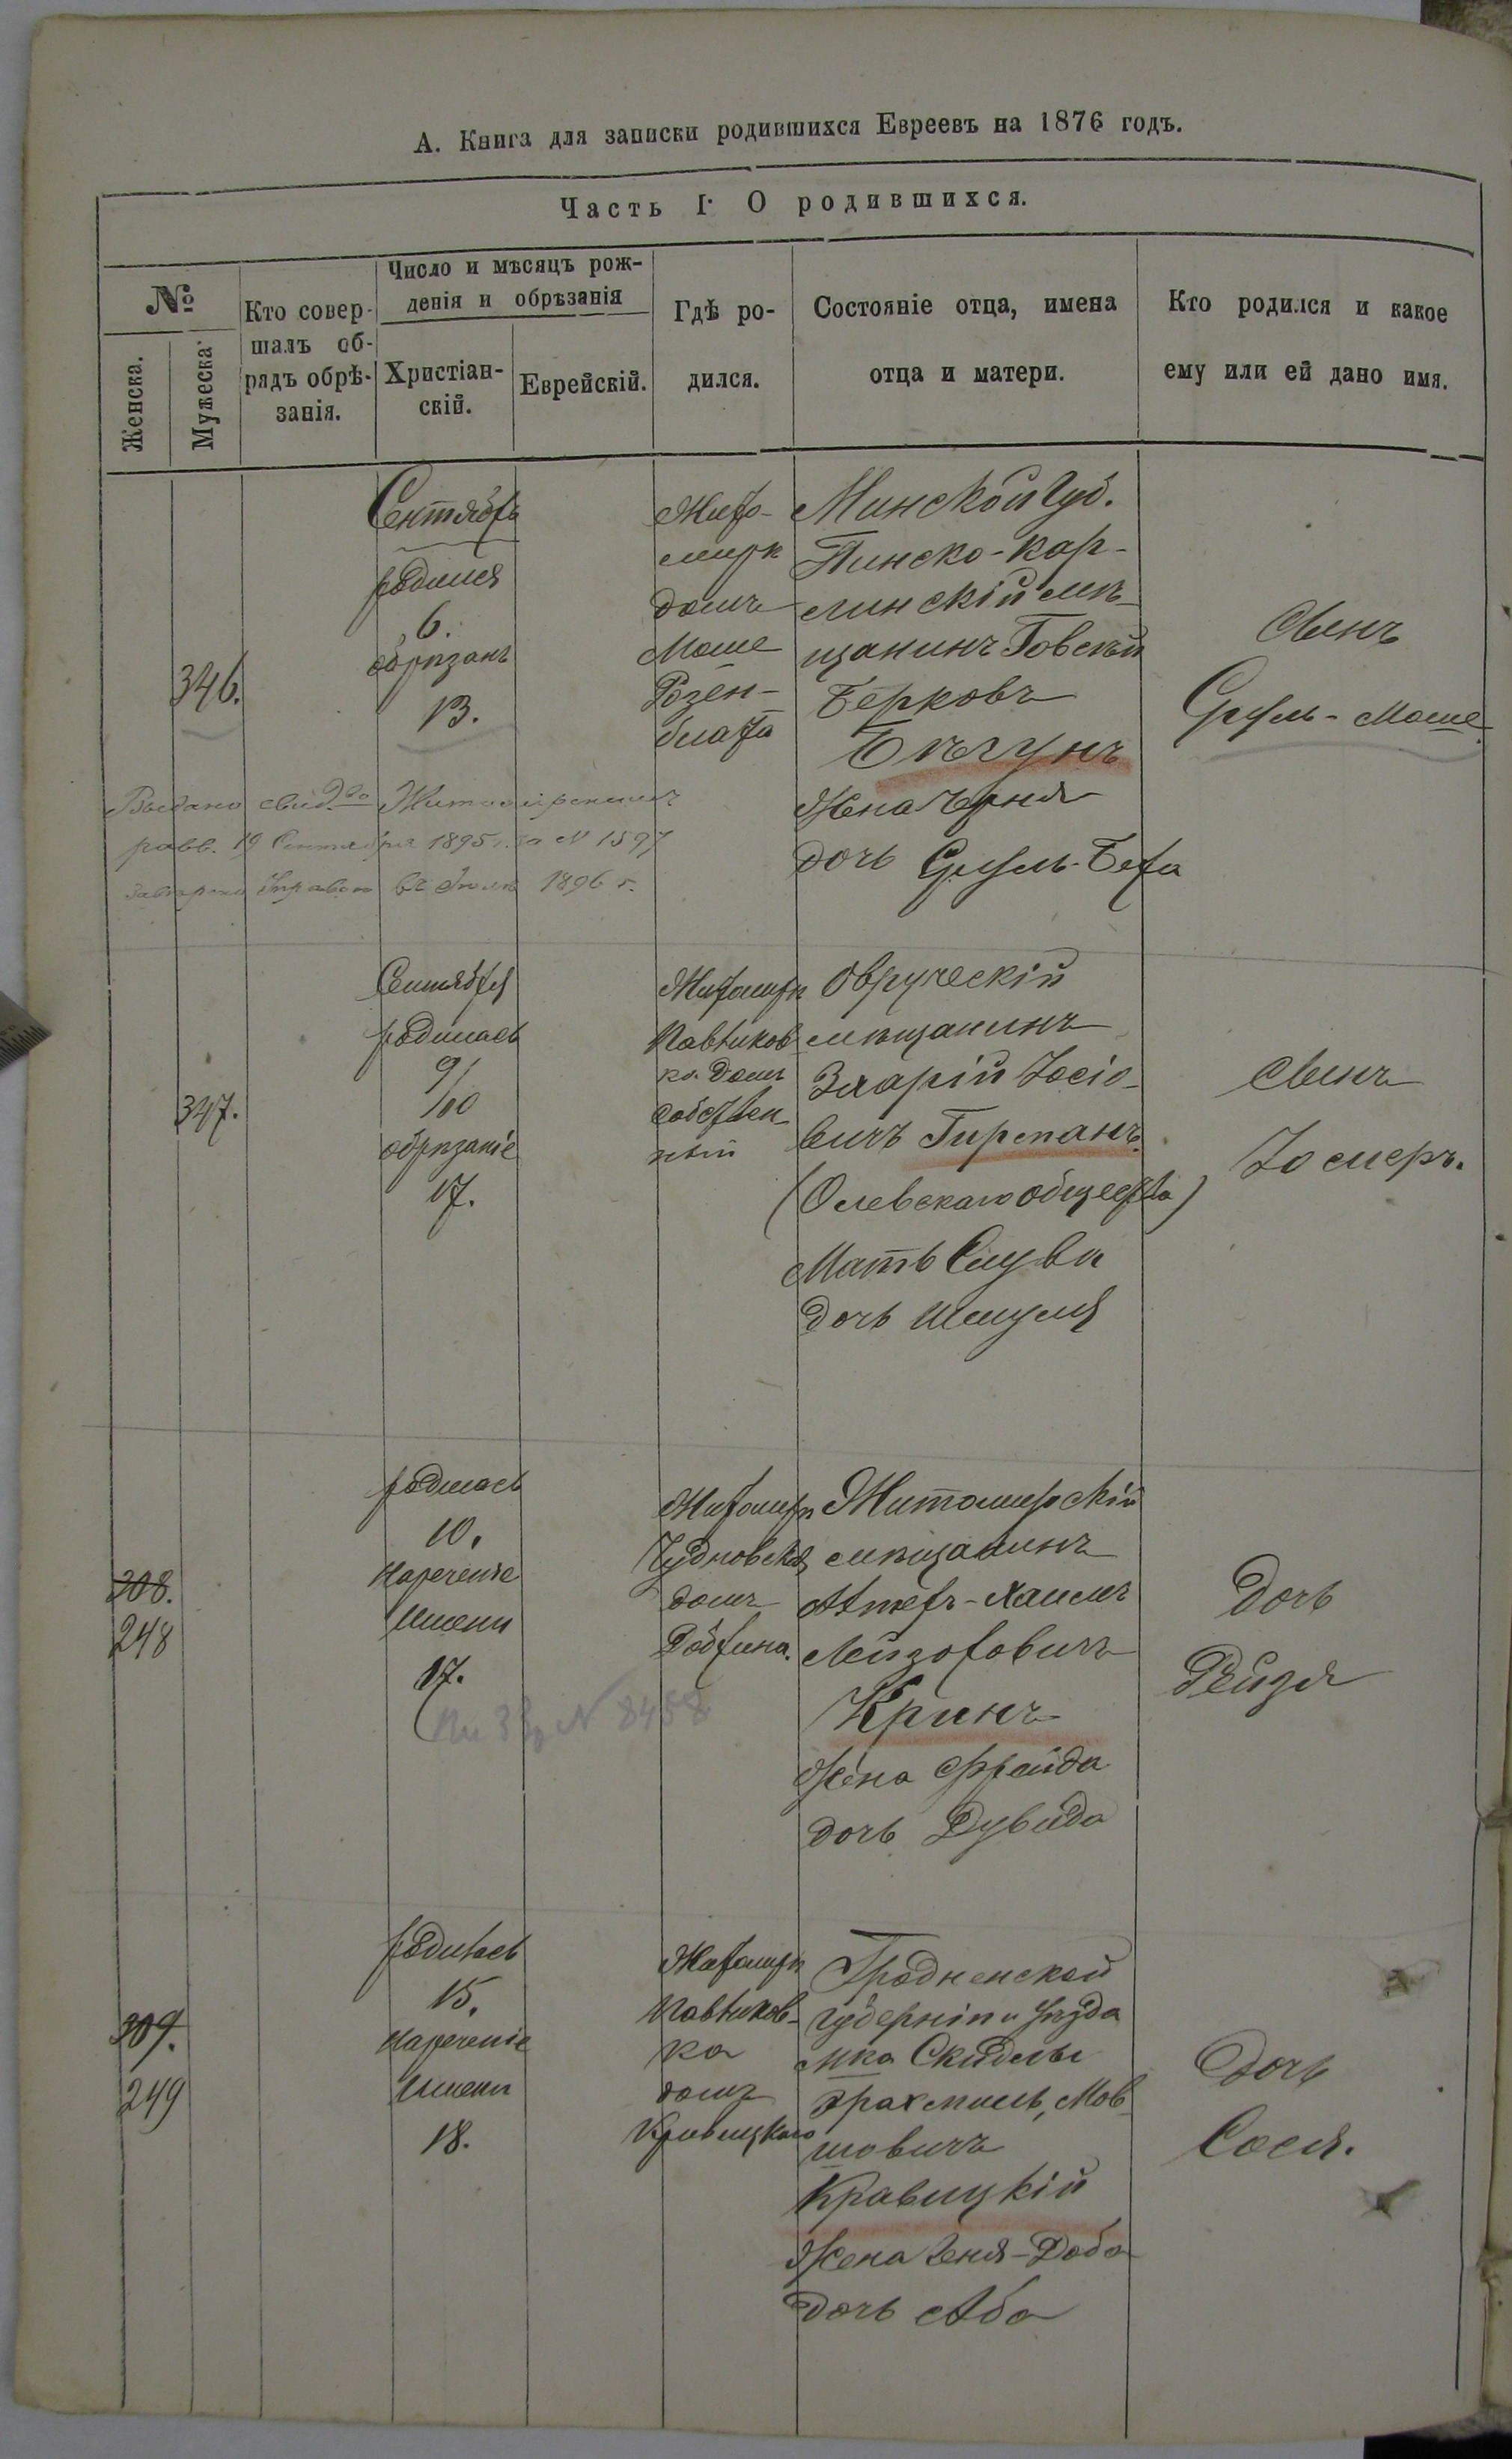 А. Книга для записки родившихся Евреевъ на 1876 годъ.
Часть I. О родившихся.
№
Женска.
Мужеска
Кто совер-
шалъ об-
рядъ обрѣ-
занія.
Число и мѣсяцъ рож-
денія и обрѣзанія
Христіан-
скій.
Еврейскій.
Гдѣ ро-
дился.
Состояніе отца, имена
отца и матери.
Кто родился и какое
ему или ей дано имя.
346.
Сентябрь
родился
6.
обрѣзанъ
13.
Жито-
мирѣ
домъ
Моше
Розен-
блата
Минской Губ.
Пинско-Кар-
линскій мѣ-
щанинъ
Берковъ
Бѣгунъ
Жена Черня
дочь Сруль-Бера
Сынъ
Сруль-Моше
Выдано свид-во Житомирскимъ
равв. 19 Сентября 1895 г. за № 1597
Управою въ 1896 г.
347.
Сентября
родился
9/10
обрѣзаніе
17.
Житомирѣ
Павликов-
ка домъ
собствен
ный
Овручскій
мѣщанинъ
Іосіо-
вичъ
(Олевскаго общества)
Мать
дочь Шмуля
Сынъ
308.
248
родилась
10.
Нареченіе
Имени
17.
№ 8458
Житомирѣ
Чудновская
домъ
Житомирскій
мѣщанинъ
Алтеръ-Хаимъ
Лейзоровичъ
Кринъ
Жена Фрейда
дочь Дувида
Дочь
Рейзя
309.
249
родилась
15.
Нареченіе
Имени
18.
Житомирѣ
Павликов-
ка
домъ
Кравицкаго
Гродненской
губерніи и уѣзда
мка Скиделы
Ерахміель, Мов
шовичъ
Кравицкій
Жена Геня-Доба
дочь Аба
Дочь
Сося.